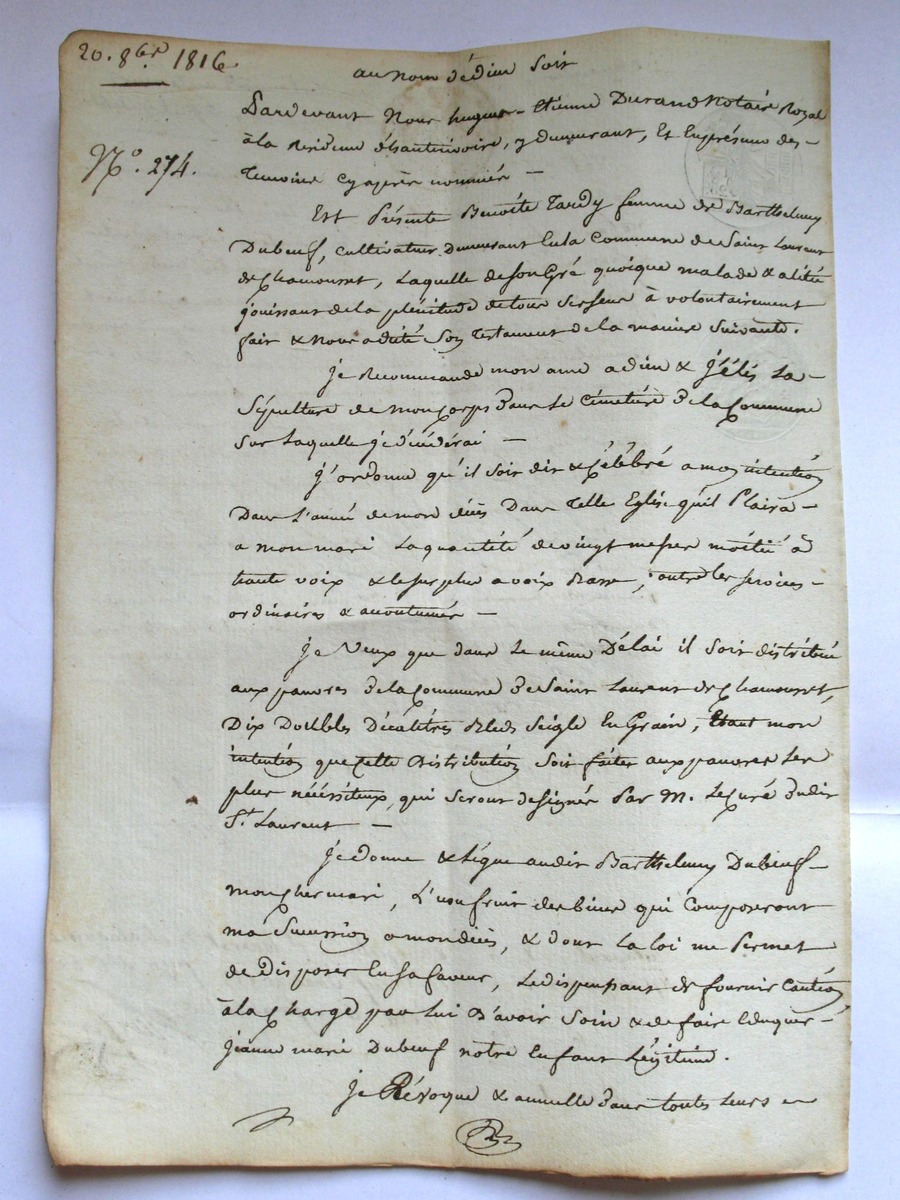 20. 8bre. 1816
au nom de dieu Soit
N°. 274.
Pardevant Nous hugues-Etienne Durand Notaire Royal
à la Résidence d'hauterivoire, y demeurant, Et En présence des-
Temoins Cy après nommés -
Est Présente Benoite Tardy femme de Barthelemy
Dubeuf, cultivateur demeurant En la Commune de Saint Laurent
de Chamousset, Laquelle de son Gré quoique malade & alitée
jouissant de la plénitude de tous Ses Sens à volontairement
fait & nous a dicté Son Testament de la manière Suivante.
Je Recommande mon ame a dieu & J'élis La-
Sépulture de mon Corps dans Le Cimetière de la Commune
Sur Laquelle je décéderai -
J'ordonne qu'il Soit dit & Célébré a mon intention
Dans L'année de mon décès Dans Telle Eglise qu'il Plaira-
a mon mari La quantité de vingt messes moitié à
haute voix & le surplus a voix Basse, outre les services-
ordinaires & accoutumés -
Je Veux que dans Le même Délai il Soit distribué
aux pauvres de la Commune de Saint Laurent de Chamousset,
Dix Doubles Décalitres Bled Seigle En Grain, Etant mon
intention que Cette Distribution Soit faite aux pauvres Les
plus nécessiteux, qui Seront designés Par M. Le Curé dudit
St. Laurent -
Je donne & Lègue audit Barthelemy Dubeuf-
mon Cher mari, L'usufruit des biens qui Composeront
ma Succession a mon décès, & dont La loi me Permet
de disposer En Sa faveur, Le dispensant de fournir Caution
à la Charge par Lui D'avoir Soin & de faire Eduquer-
Jeanne marie Dubeuf notre Enfant Légitime.
Je Révoque & annulle dans toutes Leurs -